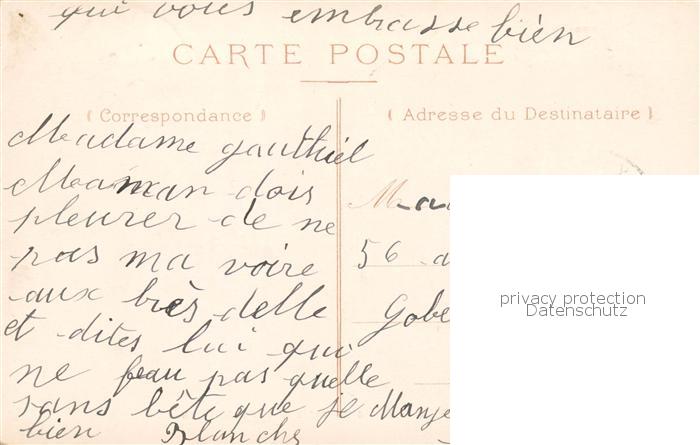 qui vous embrasse bien
CARTE POSTALE
(Correspondance)
(Adresse du Destinataire)
Madame gauthiel
Maman dois
pleurer de ne
pas ma voire
aux brès delle
et dites lui qui
ne feau pas quelle
sans bête que je Manje
bien Blanche
56 a
Gobe
privacy protection
Datenschutz